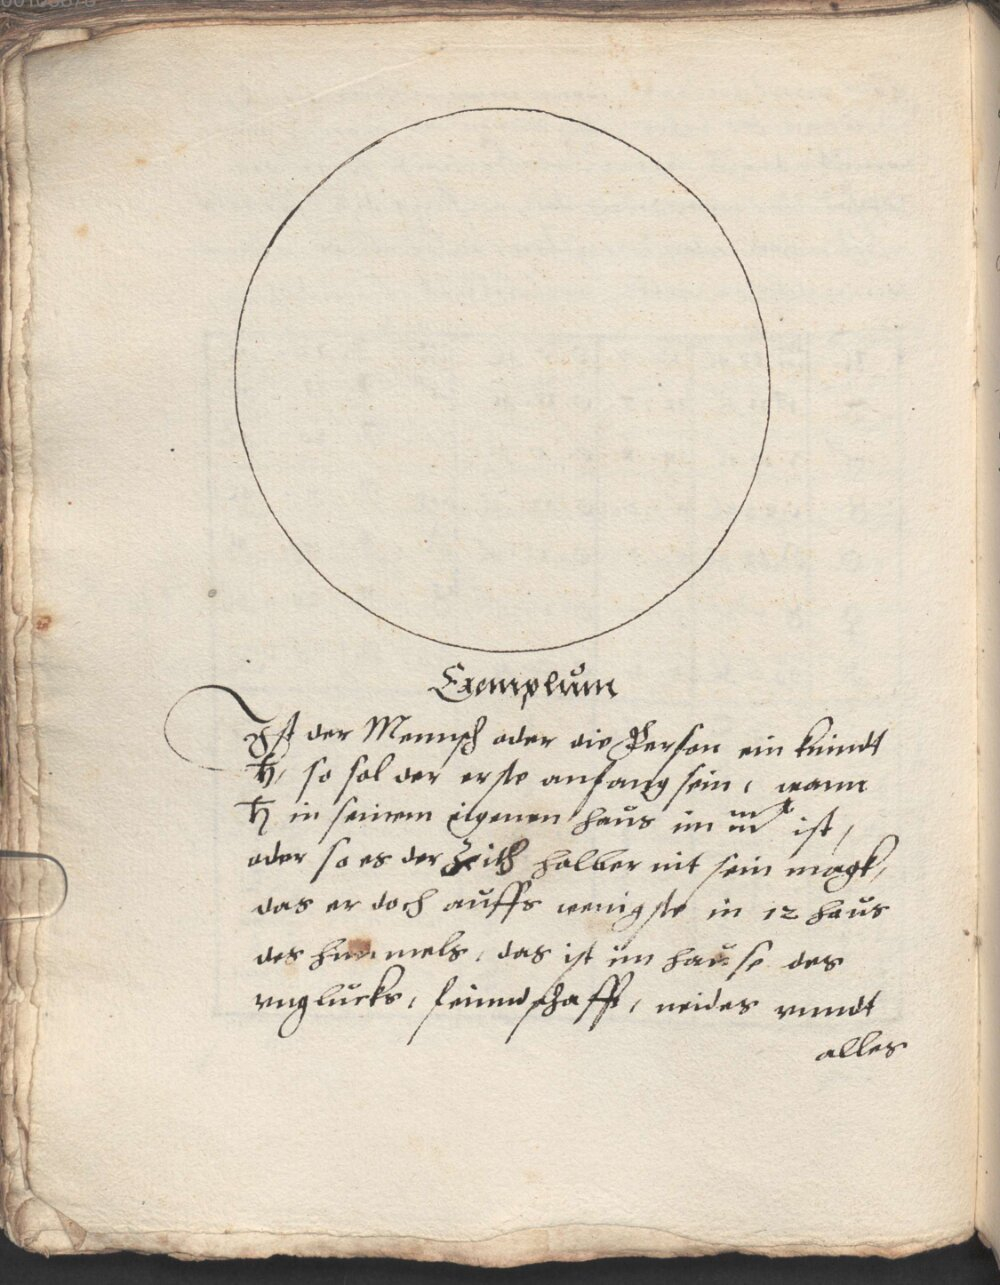 Exemplum
Ist der Mennsch oder die Person ein kindt
♄, so sol der erste anfang sein, wann
♄ in seinem eigenen haus im ♏ ist,
oder so es der Zeith halber nit sein magk,
das er doch auffs wenigste in 12 haus
des himmels, das ist im hause des
vnglucks, feindschafft, neides vnndt
alles